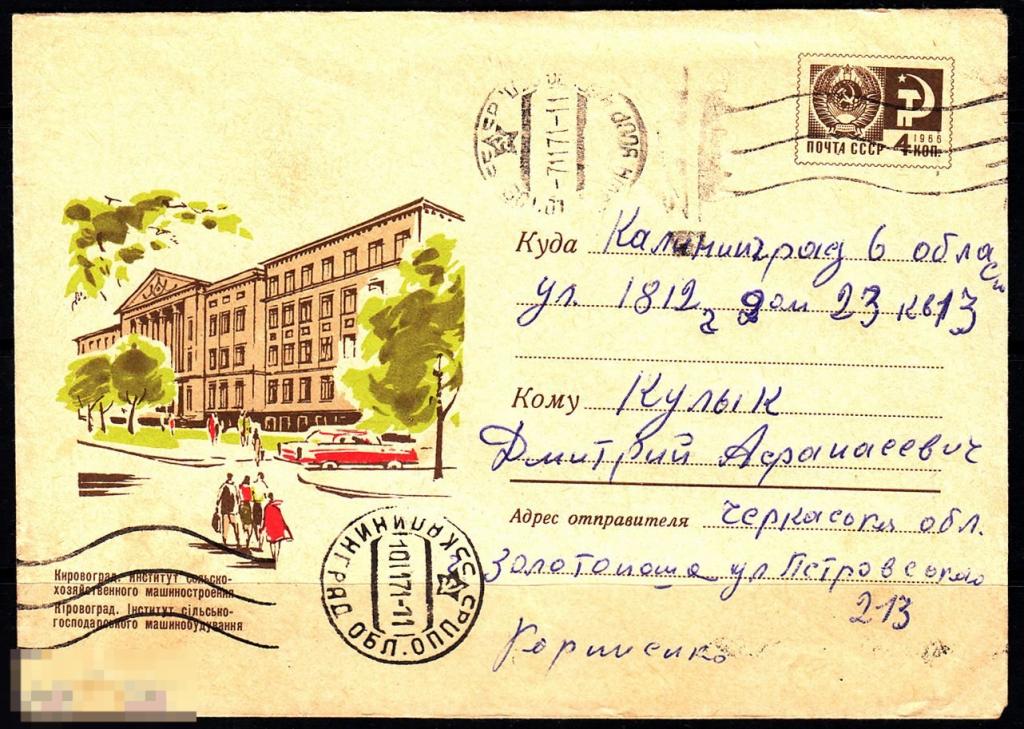 ПОЧТА СССР 4 КОП.
1966
Куда Калининград 6 област
ул. 1812 г дом 23 кв 13
Кому Кулык
Дмитрий Афанасевич
Адрес отправителя Черкаська обл.
Золотоноша ул Петровського
213
Корниенко
КАЛИНИНГРАД ОБЛ.
10 11 71-11
7 11 71-11
Кировоград. Институт сельско-
хозяйственного машиностроения
Кіровоград. Інститут сільсько-
господарського машинобудування